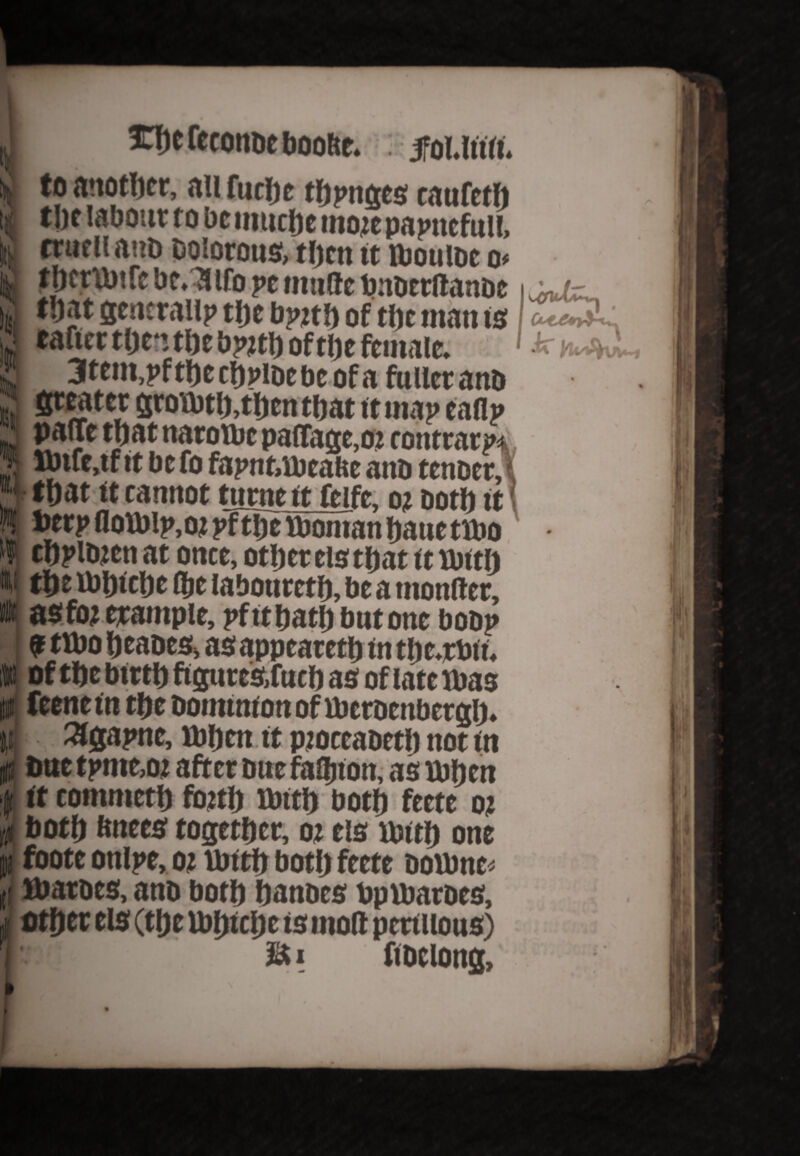 The seconde booke. Fol.liiii.
to another, all suche thynges causeth
the labour to be muche more paynefull,
cruell and dolorous, then it woulde o-
therwise be. Also ye muste vnderstande
that generally the byrth of the man is
easier then the byrth of the female.
Item, yf the chylde be of a fuller and
greater growth, then that it may easly
passe that narowe passage, or contrary-
wise, if it be so faynt, weake and tender,
that it cannot turne it selfe, or doth it
very slowly, or yf the woman haue two
chyldren at once, other els that it with
the whiche she laboureth, be a monster,
as for example, yf it hath but one body
& two heades, as appeareth in the .xvii.
of the birth figures, such as of late was
seene in the dominion of werdenbergh.
Agayne, when it proceadeth not in
due tyme, or after due fashion, as when
it commeth forth with both feete or
both knees together, or els with one
foote onlye, or with both feete downe-
wardes, and both handes vpwardes,
other els (the whiche is most perillous)
K i sidelong,